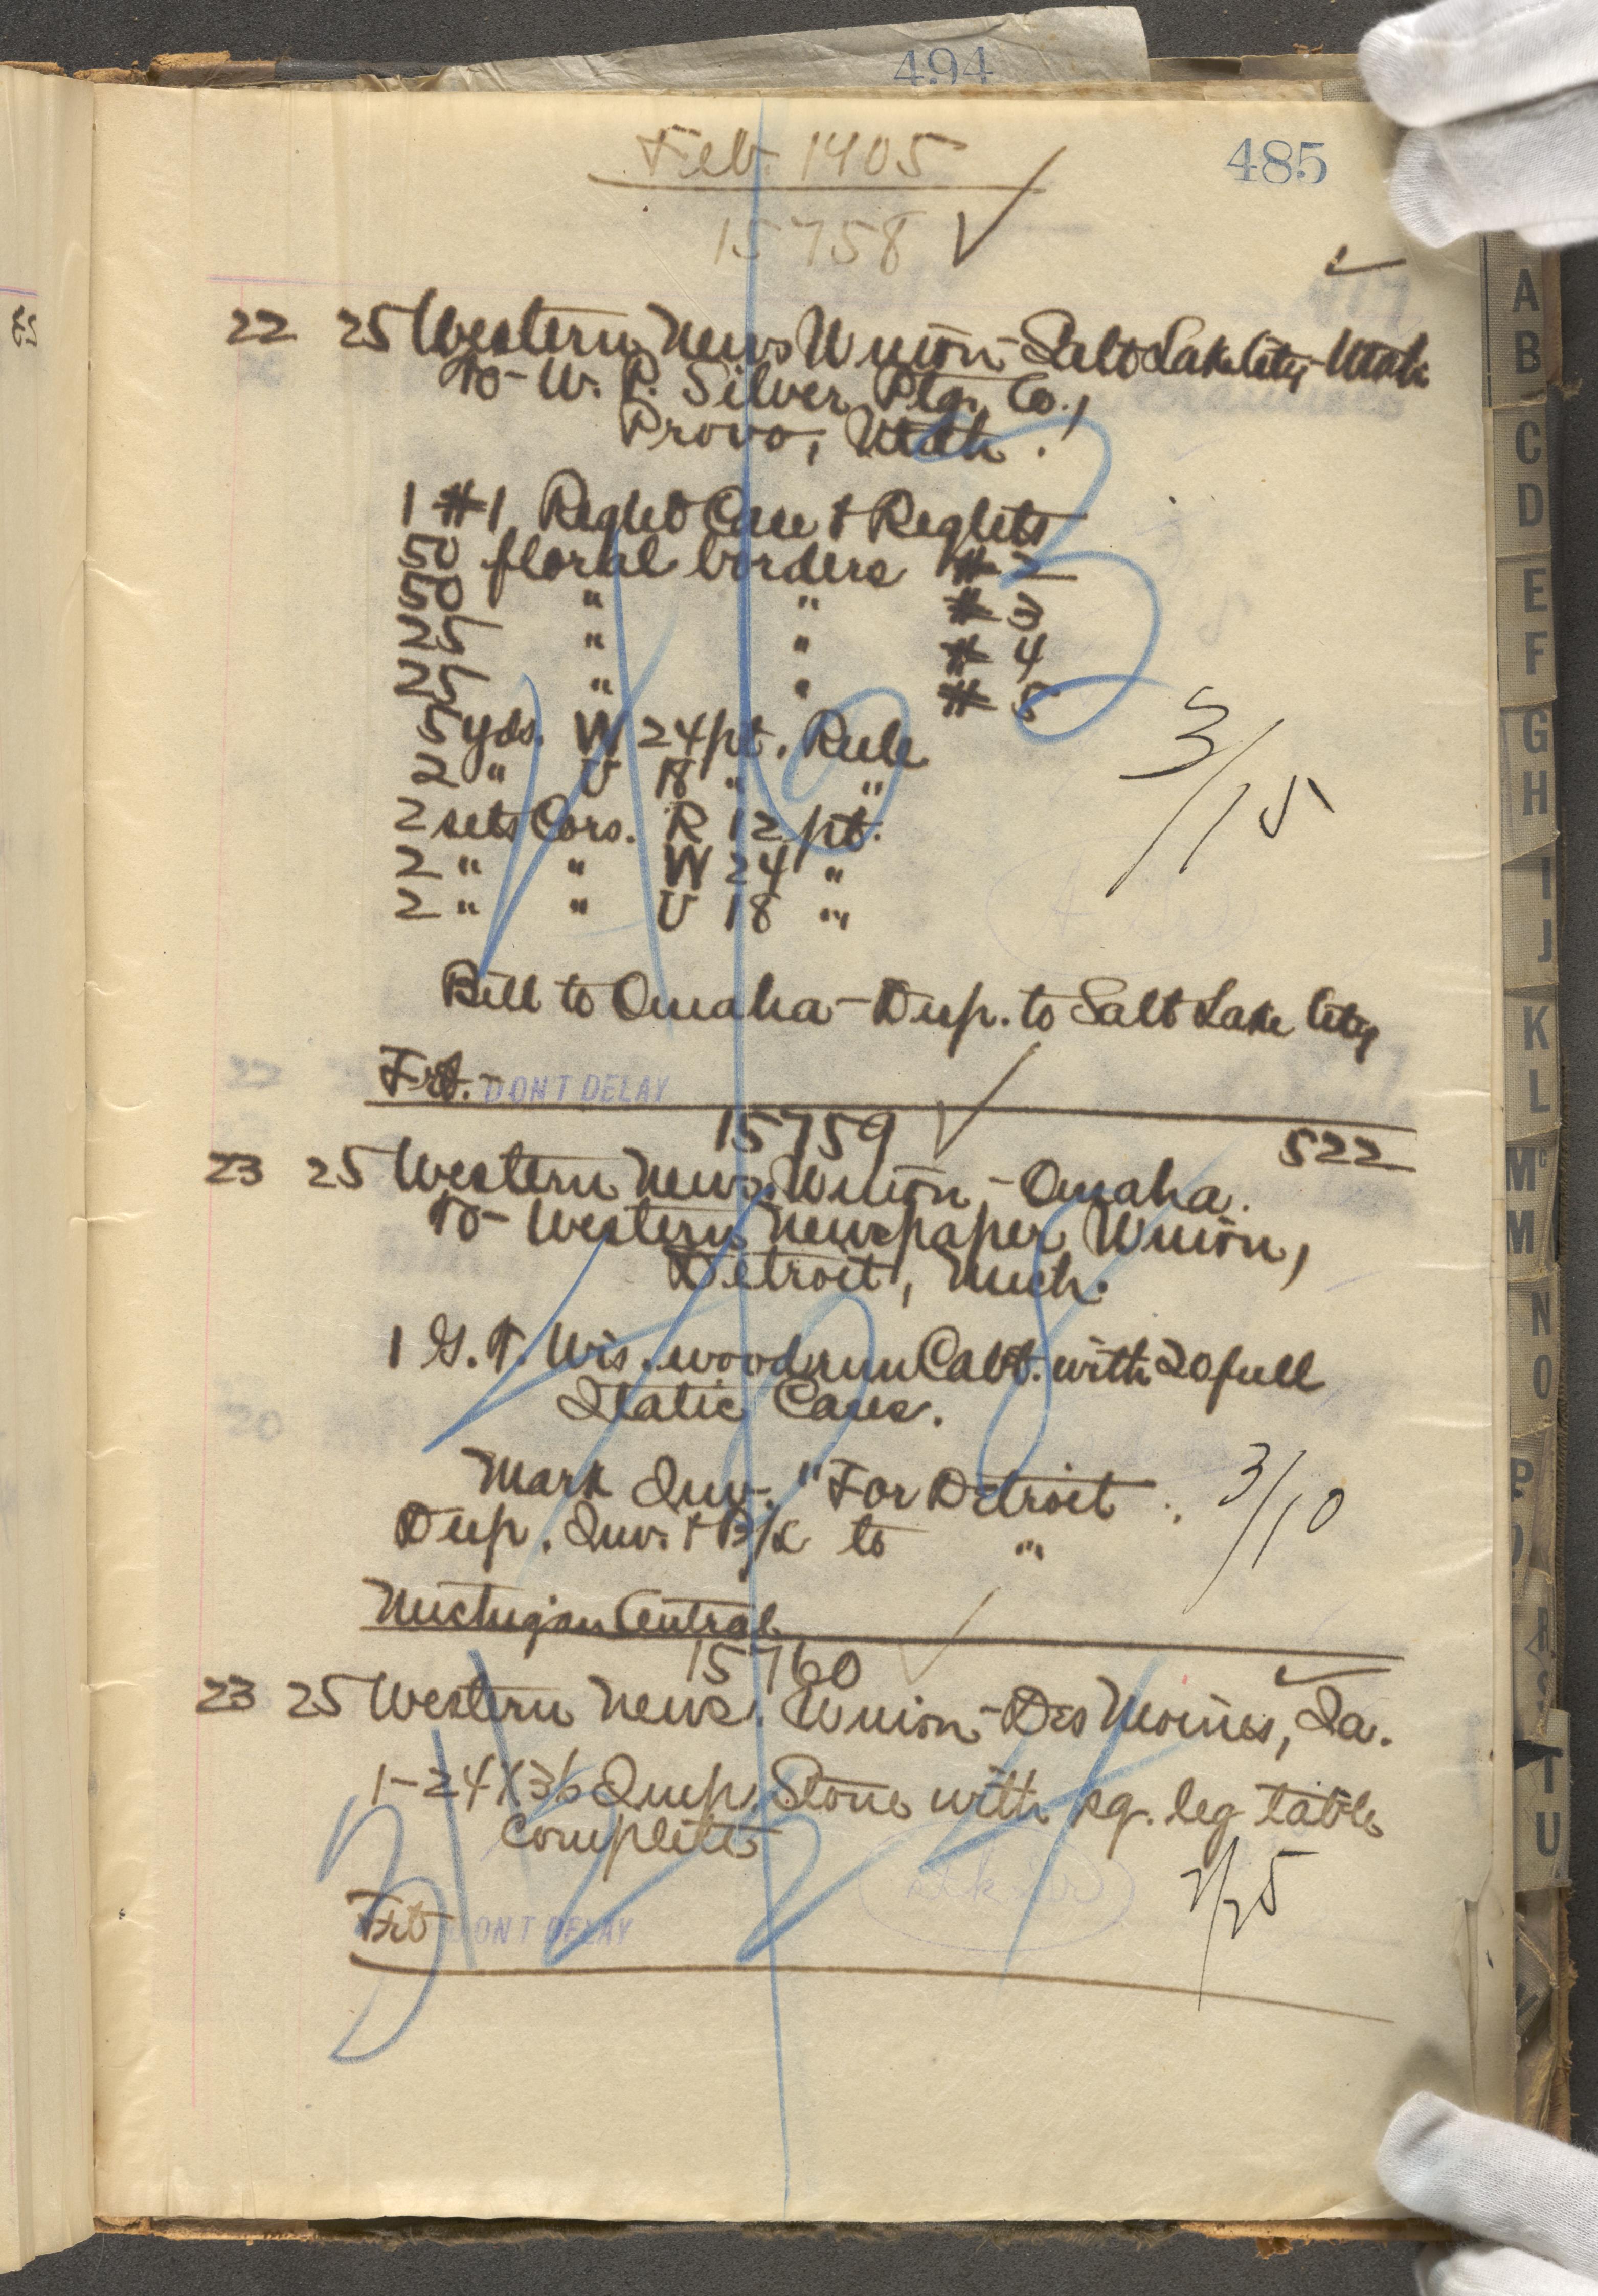 494
485
Feb. 1905
15758
22 25 Western News Union - Salt Lake City - Utah
To - W. P. Silver Ptg. Co.,
Provo, Utah.
1 #1 Reglet Case & Reglets
50 floral borders #2
50 " " #3
25 " " #4
25 " " #5
5 yds. W 24 pt. Rule
2 " U 18 " "
2 sets Cors. R 12 pt.
2 " " W 24 "
2 " " U 18 "
3/15
Bill to Omaha - Dup. to Salt Lake City
Frt. - DON'T DELAY
15759
522
23 25 Western News. Union, - Omaha.
To - Western Newspaper Union,
Detroit, Mich.
1 G. T. Wis. wood run Cabt. with 20 full
Italic Cases.
Mark Inv. "For Detroit".
Dup. Inv. & B/L to "
3/10
Michigan Central
15760
23 25 Western News. Union - Des Moines, Ia.
1 - 24 X 36 Imp. Stone with sq. leg table
complete
2/25
Frt DON'T DELAY
A
B
C
D
E
F
G
H
I
J
K
L
Mc
M
N
O
P
Q
R
S
T
U